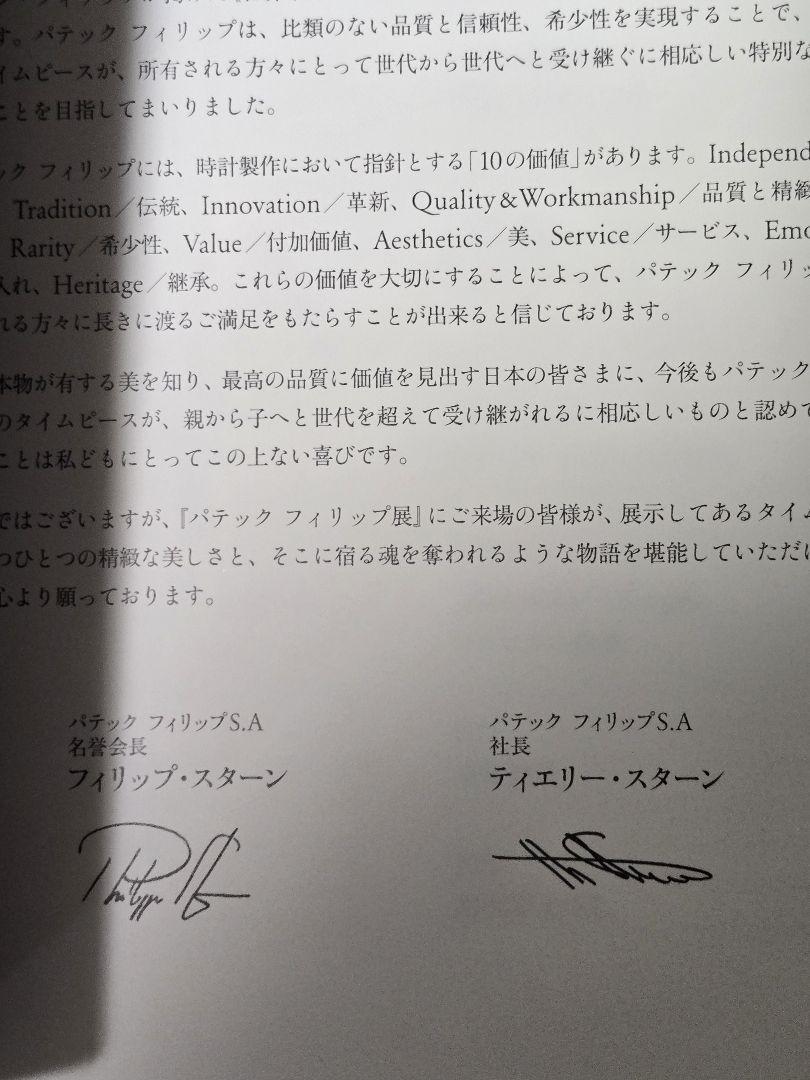 す。パテック フィリップは、比類のない品質と信頼性、希少性を実現することで、
イムピースが、所有される方々にとって世代から世代へと受け継ぐに相応しい特別な
ことを目指してまいりました。
ック フィリップには、時計製作において指針とする「10の価値」があります。Independ
Tradition／伝統、Innovation／革新、Quality&Workmanship／品質と精緻
Rarity／希少性、Value／付加価値、Aesthetics／美、Service／サービス、Emo
入れ、Heritage／継承。これらの価値を大切にすることによって、パテック フィリッ
れる方々に長きに渡るご満足をもたらすことが出来ると信じております。
本物が有する美を知り、最高の品質に価値を見出す日本の皆さまに、今後もパテック
のタイムピースが、親から子へと世代を超えて受け継がれるに相応しいものと認めて
ことは私どもにとってこの上ない喜びです。
ではございますが、『パテック フィリップ展』にご来場の皆様が、展示してあるタイム
つひとつの精緻な美しさと、そこに宿る魂を奪われるような物語を堪能していただけ
心より願っております。
パテック フィリップS.A
名誉会長
フィリップ・スターン
パテック フィリップS.A
社長
ティエリー・スターン